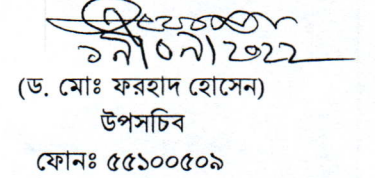 ১৯/০৯/২০২২
(ড. মোঃ ফরহাদ হোসেন)
উপসচিব
ফোনঃ ৫৫১০০৫০৯